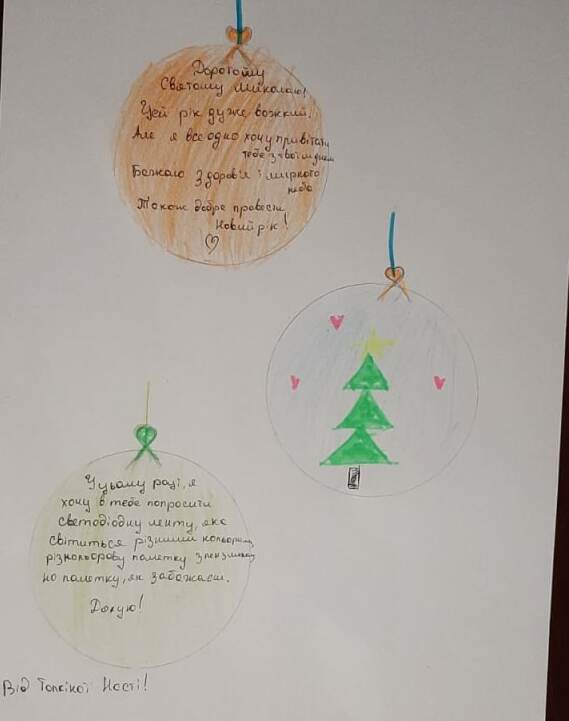 Дорогому
Святому Миколаю!
Цей рік дуже вожкий.
Але я все одно хочу привітати
тебе з твоїм днем
Бажаю здоров'я і мирного
неба
Також добре провести
Новий рік!
У цьому році, я
хочу в тебе попросити
светодіодну ленту, яка
світиться різними кольорами,
різнокольорову палетку з пензликом,
но палетку, як забажаєш.
Дякую!
Від Насті!